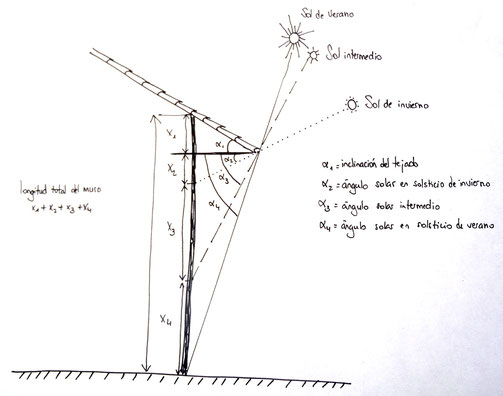 Sol de verano
Sol intermedio
Sol de invierno
x1
α1
α2
x2
α3
α4
longitud total del muro
x1 + x2 + x3 + x4
x3
x4
α1 = inclinación del tejado
α2 = ángulo solar en solsticio de invierno
α3 = ángulo solares intermedio
α4 = ángulo solar en solsticio de verano